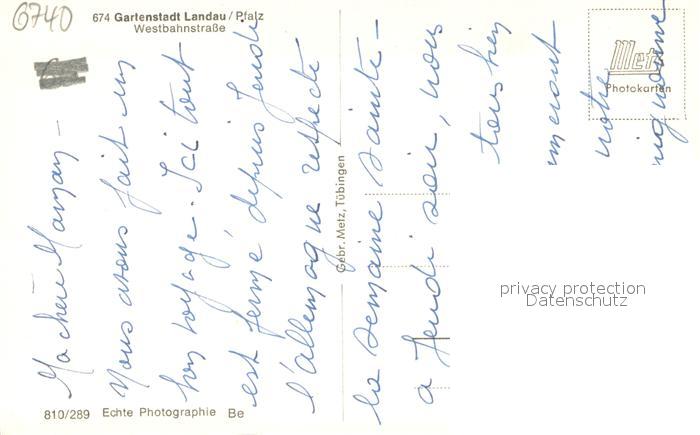 6740
674 Gartenstadt Landau/Pfalz
Westbahnstraße
Metz
Photokarten
Ma chère Maman –
Nous avons fait un
bon voyage. Ici tout
est fermé depuis Jeudi
l'allemagne respecte
la semaine sainte –
a Jeudi soir, nous
tous
notre
Gebr. Metz, Tübingen
privacy protection
Datenschutz
810/289 Echte Photographie Be